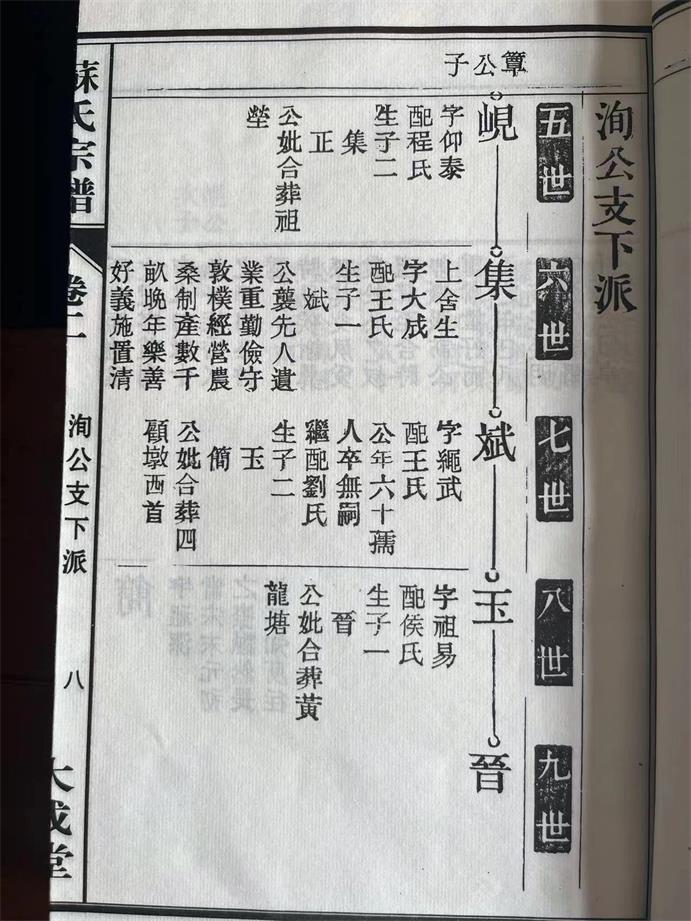 洵公支下派
五世
六世
七世
八世
九世
簟公子
峴
字仰泰
配程氏
生子二
集
正
公妣合葬祖
塋
集
上舍生
字大成
配王氏
生子一
斌
公襲先人遺
業重勤儉守
敦樸經營農
桑制產數千
畝晚年樂善
好義施置清
斌
字繩武
配王氏
公年六十孺
人卒無嗣
繼配劉氏
生子二
玉
簡
公妣合葬四
顧墩西首
玉
字祖易
配侯氏
生子一
晉
公妣合葬黃
龍塘
晉
蘇氏宗譜
卷二
洵公支下派
八
大成堂